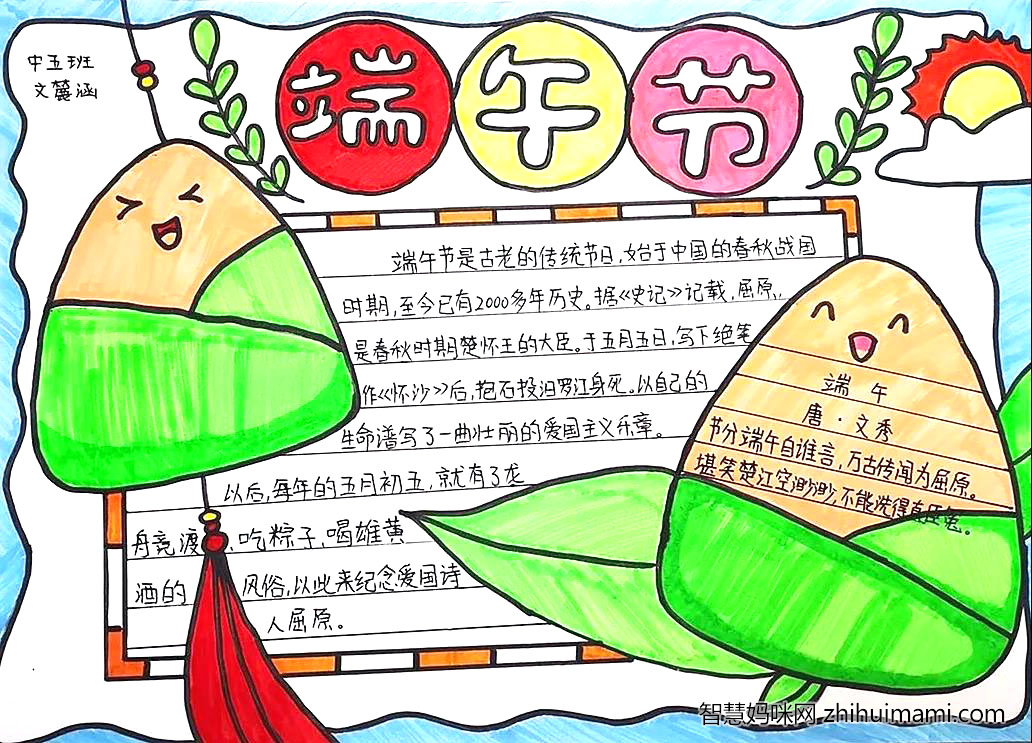 中五班
文麓涵
端午节
端午节是古老的传统节日,始于中国的春秋战国
时期,至今已有2000多年历史。据《史记》记载,屈原,
是春秋时期楚怀王的大臣。于五月五日,写下绝笔
作《怀沙》后,抱石投汨罗江身死。以自己的
生命谱写了一曲壮丽的爱国主义乐章。
以后,每年的五月初五,就有了龙
舟竞渡、吃粽子、喝雄黄
酒的 风俗,以此来纪念爱国诗
人屈原。
端 午
唐·文秀
节分端午自谁言,万古传闻为屈原。
堪笑楚江空渺渺,不能洗得直臣冤。
智慧妈咪网 zhihuimami.com